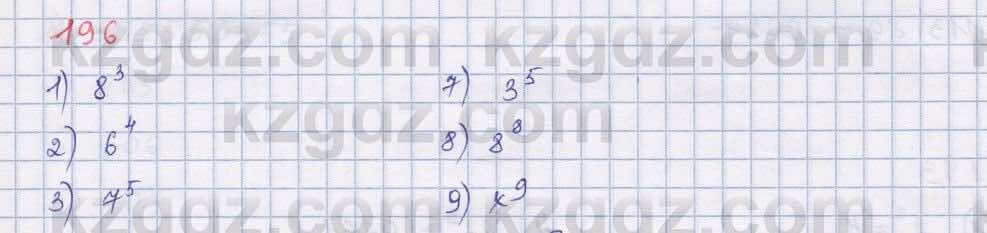 196
kzgdz.com kzgdz.com
1) 8³ 7) 3⁵
kzgdz.com
2) 6⁴ 8) 8⁸
3) 7⁵ 9) x⁹
kzgdz.com kzgdz.com